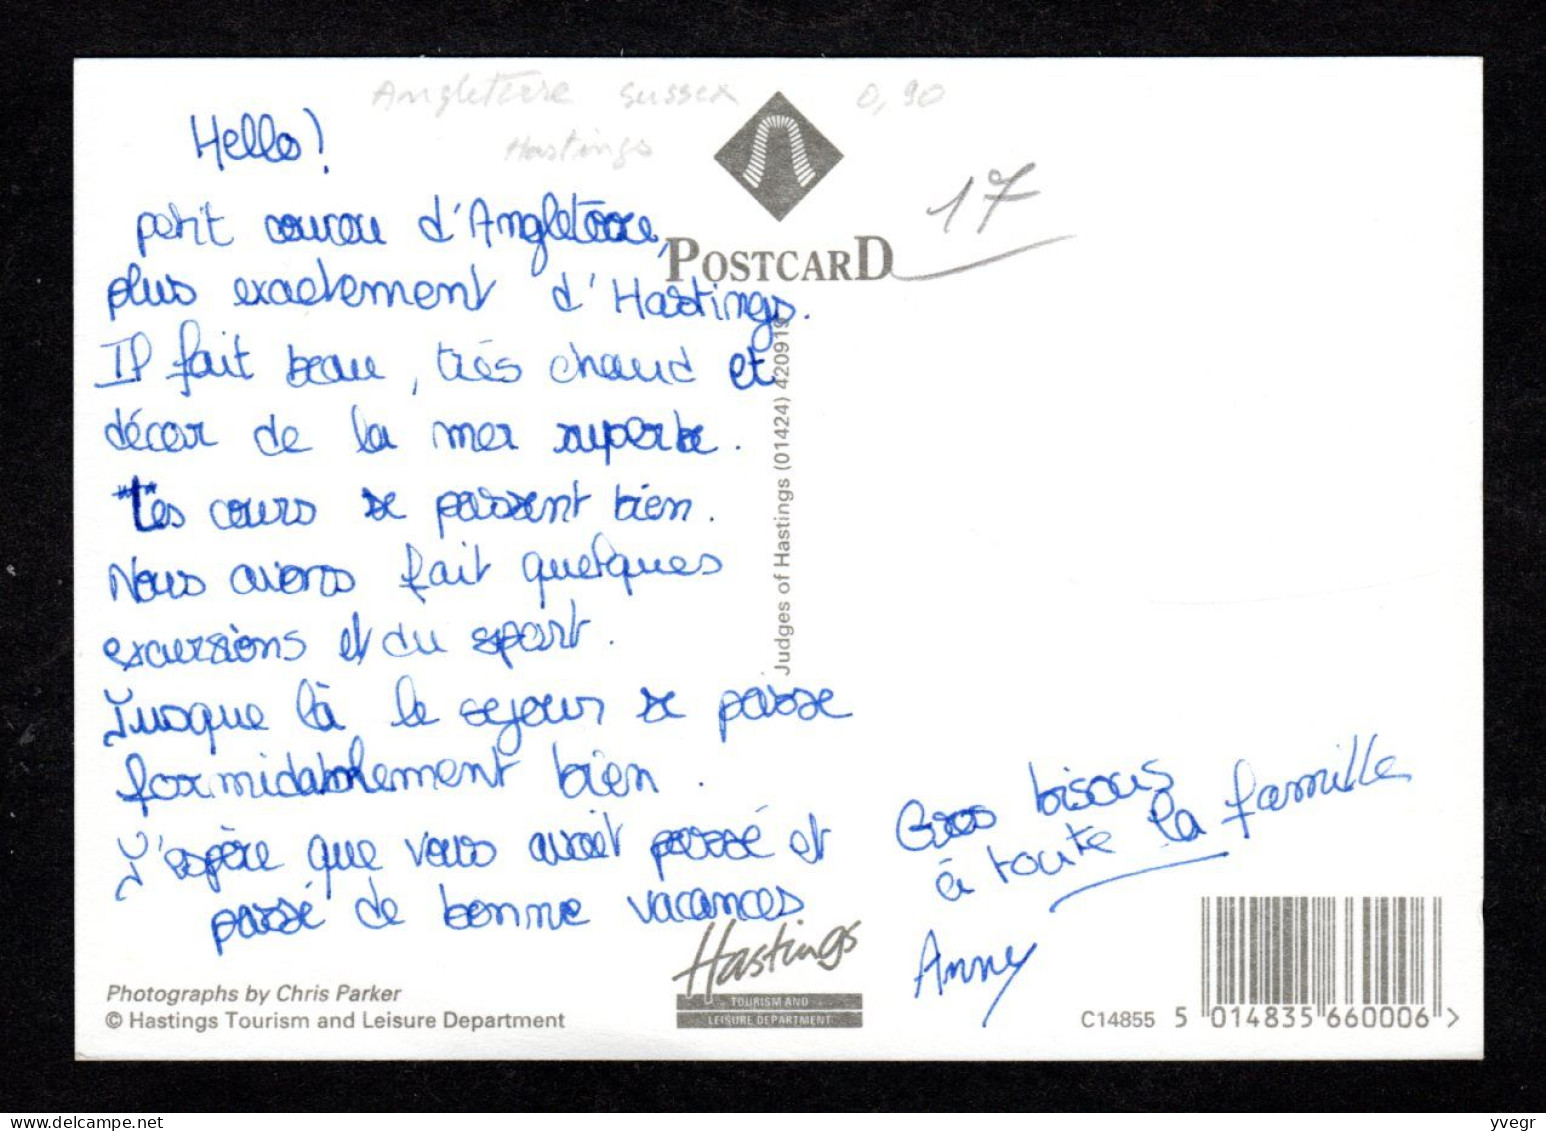 Angleterre Sussex 0,90
Hastings
17
Hello!
petit coucou d'Angleterre,
plus exactement d'Hastings.
Il fait beau, très chaud et
décor de la mer superbe.
Les cours se passent bien.
Nous avons fait quelques
excursions et du sport.
Jusque là le sejour se passe
formidablement bien.
J'espère que vous avait passé et
passé de bonne vacances
POSTCARD
Judges of Hastings (01424) 420919
Gros bisous
à toute la famille
Anny
Photographs by Chris Parker
© Hastings Tourism and Leisure Department
Hastings
TOURISM AND
LEISURE DEPARTMENT
C14855 5 014835 660006 >
yvegr